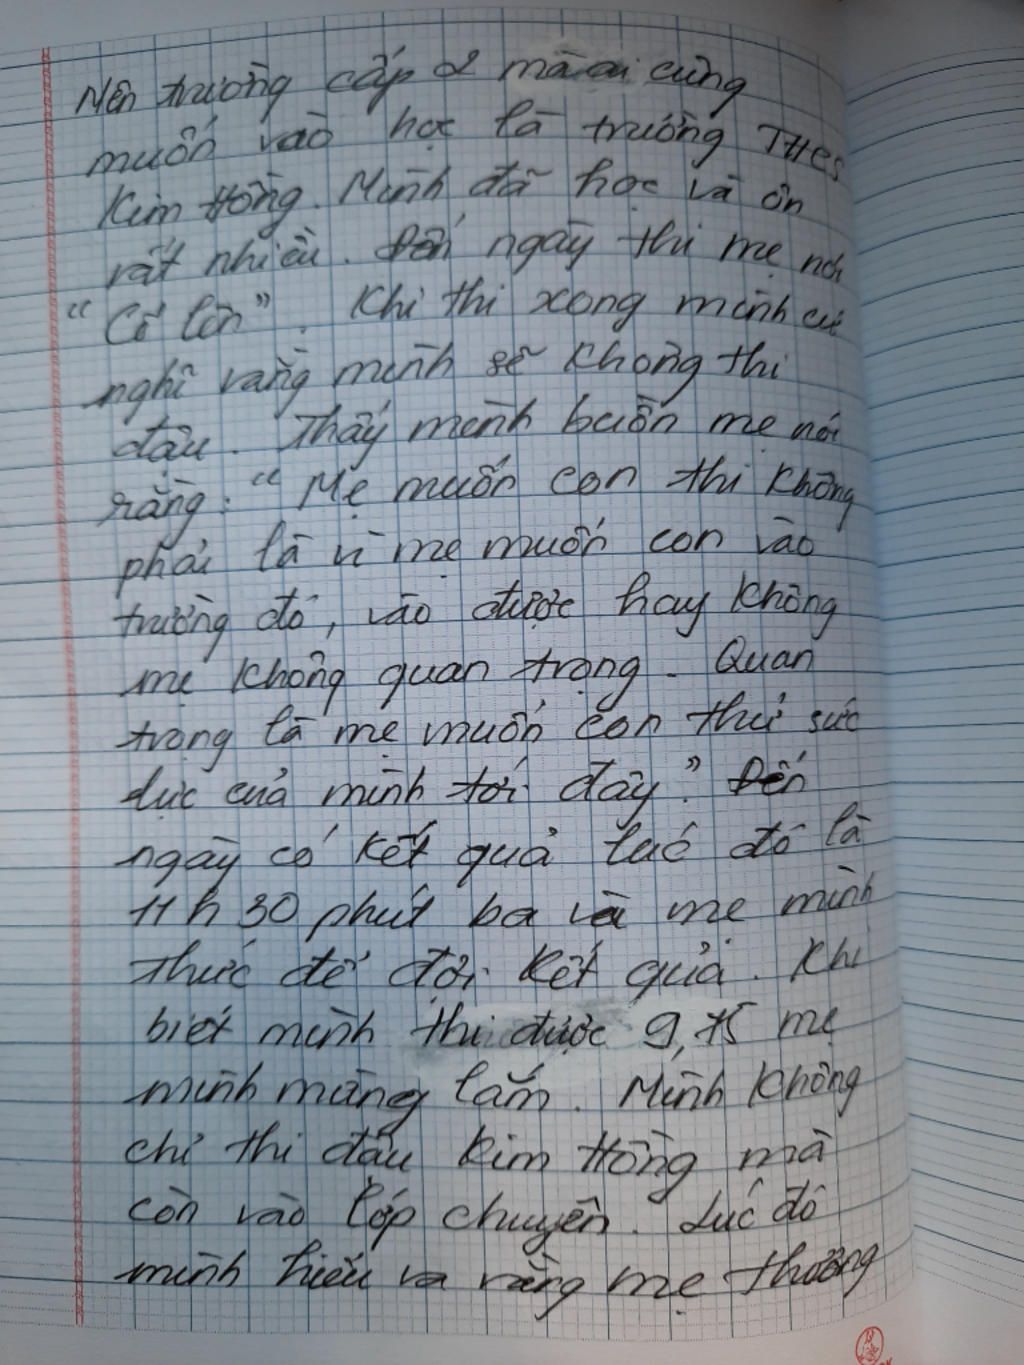 Nên trường cấp 2 mà ai cũng
muốn vào học là trường THCS
Kim Hồng. Mình đã học và ôn
rất nhiều. Đến ngày thi mẹ nói
“Cố lên”. Khi thi xong mình cứ
nghĩ rằng mình sẽ không thi
đậu. Thấy mình buồn mẹ nói
rằng: “Mẹ muốn con thi không
phải là vì mẹ muốn con vào
trường đó, vào được hay không
mẹ không quan trọng. Quan
trọng là mẹ muốn con thử sức
lực của mình tới đây”. Đến
ngày có kết quả lúc đó là
11h30 phút ba và mẹ mình
thức để đợi kết quả. Khi
biết mình thi được 9,75 mẹ
mình mừng lắm. Mình không
chỉ thi đậu Kim Hồng mà
còn vào lớp chuyên. Lúc đó
mình hiểu ra rằng mẹ thương